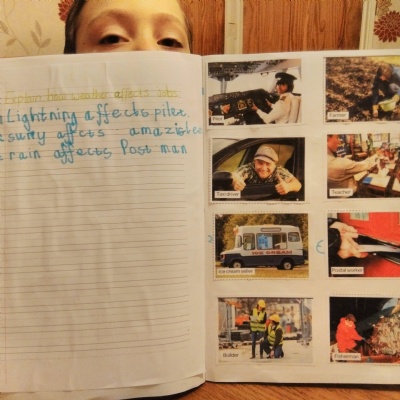 Explain how weather affects jobs
Lightning affects pilet
suny affcts amazistee
rain affects Post man
Pilot
Farmer
Taxi driver
Teacher
Ice cream seller
Postal worker
Builder
Fisherman
ICE CREAM